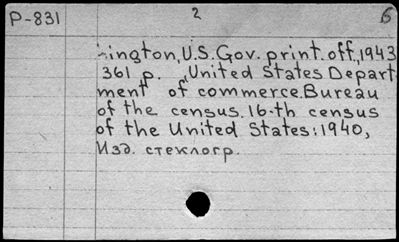 P-831 2 6
hington, U.S. Gov. print. off, 1943
361 p. United States Depart-
ment of commerce. Bureau
of the census. 16-th census
of the United States: 1940,
Изд. стеклогр.